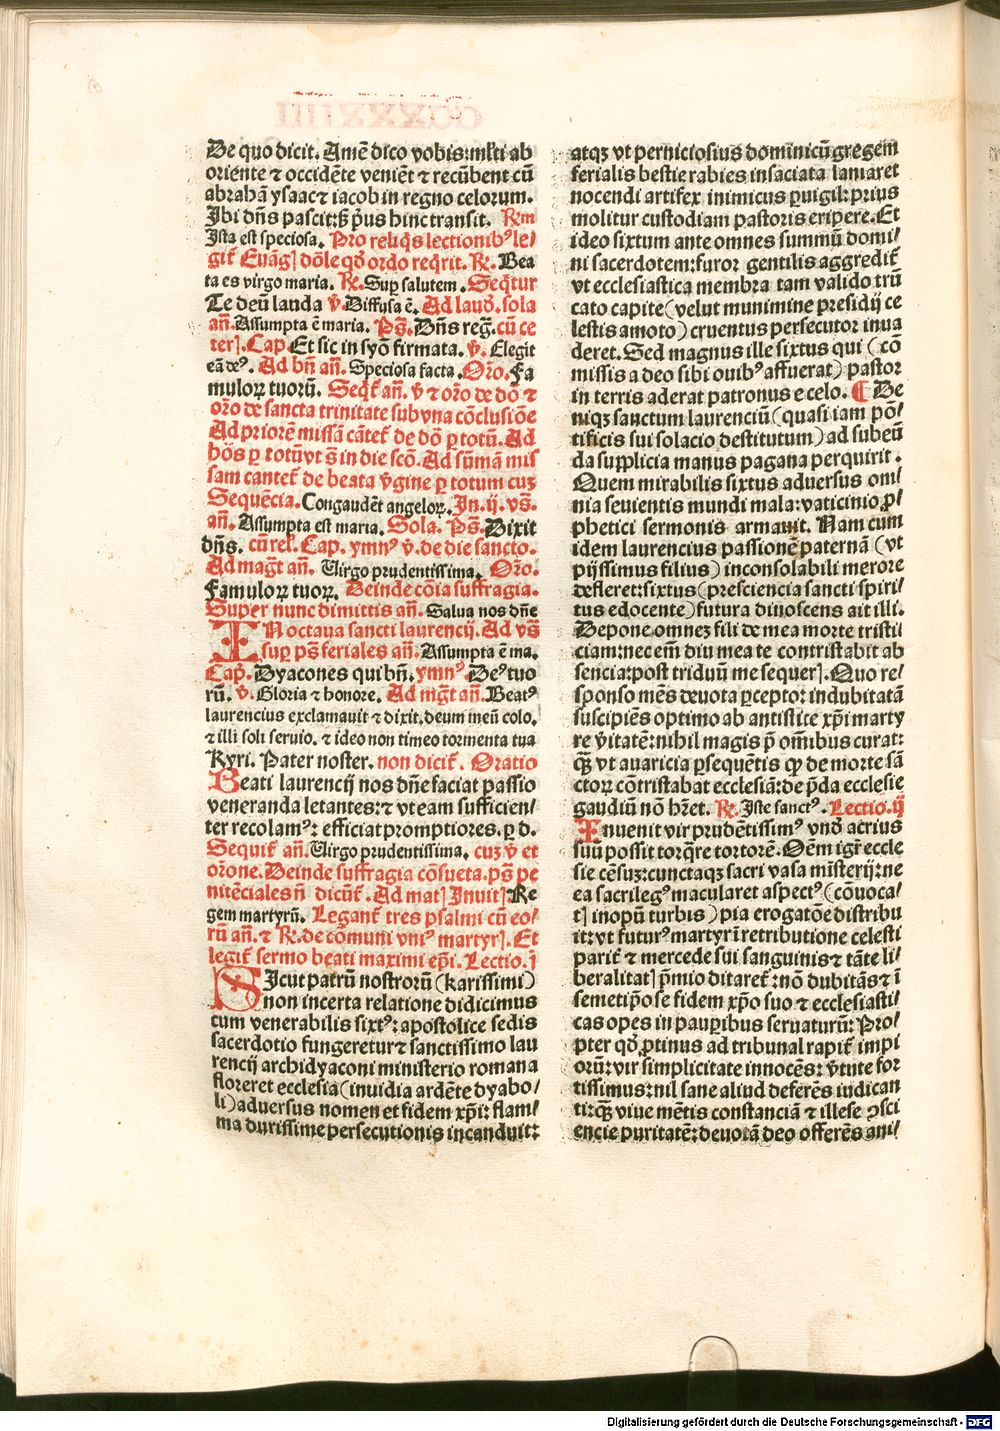 De quo dicit. Amē dico vobis: ml̄ti ab
oriente ⁊ occidēte veniēt ⁊ recūbent cū
abrahā ysaac ⁊ iacob in regno celorum.
Ibi dn̄s pascit: ß p̄us hinc transit. R̄m
Ista est speciosa. Pro reliq̄s lectionibꝰ le/
git̄ Euāgꝭ dōle qd̄ ordo req̄rit. R̄. Bea
ta es virgo maria. R̄. Suꝑ salutem. Seq̄tur
Te deū lauda v̄. Diffusa ē. Ad laud̄. sola
an̄. Assumpta ē maria. Ps̄. Dn̄s reḡ. cū ce
terꝭ. Cap. Et sic in syō firmata. v̄. Elegit
eā deꝰ. Ad bn̄ an̄. Speciosa facta. Oro̅. Fa
muloꝝ tuorū. Seqt̄ an̄. v̄ ⁊ oro̅ de dō ⁊
oro̅ de sancta trinitate sub vna cōclusiōe
Ad priorē missā cātet̄ de dō ꝑ totū. Ad
hōs ꝑ totū vt s̄ in die scō. Ad sūmā mis
sam cantet̄ de beata v̄gine ꝑ totum cuꝫ
Sequēcia. Congaudēt angeloꝝ. In .ij. vs̄.
an̄. Assumpta est maria. Sola. Ps̄. Dixit
dn̄s. cū rel̄. Cap. ymnꝰ v̄. de die sancto.
Ad mag̅t an̄. Uirgo prudentissima. Oro̅.
Famuloꝝ tuoꝝ. Deinde cōia suffragia.
Super nunc dimittis an̄. Salua nos dn̄e
IN octaua sancti laurencij. Ad vs̄
suꝑ ps̄ feriales an̄. Assumpta ē ma.
Cap̄. Dyacones qui bn̄. ymnꝰ. Deꝰ tuo
rū. v̄. Gloria ⁊ honore. Ad mg̅t an̄. Beatꝰ
laurencius exclamauit ⁊ dixit. deum meū colo.
⁊ illi soli seruio. ⁊ ideo non timeo tormenta tua
Kyri. Pater noster. non dicit̄. Oratio
Beati laurencij nos dn̄e faciat passio
veneranda letantes: ⁊ vt eam sufficien/
ter recolamꝰ: efficiat promptiores. ꝑ d.
Sequit̄ an̄. Uirgo prudentissima. cuꝫ v̄ et
orōne. Deinde suffragia cōsueta. ps̄ pe
nitēciales n̄ dicūt̄. Ad matꝭ Inuitꝭ Re
gem martyrū. Legant̄ tres psalmi cū eo/
rū an̄. ⁊ R̄. de cōmuni vniꝰ martyrꝭ. Et
legit̄ sermo beati maximi ep̄i. Lectio. j
SIcut patrū nostrorū (karissimi)
non incerta relatione didicimus
cum venerabilis sixtꝰ: apostolice sedis
sacerdotio fungeretur ⁊ sanctissimo lau
rencij archidyaconi ministerio romana
floreret ecclesia (inuidia ardēte dyabo/
li) aduersus nomen et fidem xp̄i: flam/
ma durissime persecutionis incanduit:
atqꝫ vt perniciosius dominicū gregem
ferialis bestie rabies insaciata laniaret
nocendi artifex inimicus ꝑuigil: prius
molitur custodiam pastoris eripere. Et
ideo sixtum ante omnes summū domi/
ni sacerdotem: furor gentilis aggredit̄
vt ecclesiastica membra tam valido trū
cato capite (velut munimine presidij ce
lestis amoto) cruentus persecutor inua
deret. Sed magnus ille sixtus qui (cō
missis a deo sibi ouibꝰ affuerat) pastor
in terris aderat patronus e celo. ¶ De
niqꝫ sanctum laurenciū (quasi iam pō/
tificis sui solacio destitutum) ad subeū
da supplicia manus pagana perquirit.
Quem mirabilis sixtus aduersus om/
nia seuientis mundi mala: vaticinio ꝓ/
phetici sermonis armauit. Nam cum
idem laurencius passionē paternā (vt
pijssimus filius) inconsolabili merore
defleret: sixtus (presciencia sancti spiri/
tus edocente) futura dinoscens ait illi.
Depone omneꝫ fili de mea morte tristi
ciam: nec em̄ diu me a te contristabit ab
sencia: post triduū me sequerꝭ. Quo re/
sponso mēs deuota ꝑcepto: indubitatā
suscipiēs optimo ab antistite xp̄i marty
re v̄itatē: nihil magis p̄ om̄ibus curat:
qꝙ̄ vt auaricia ꝑsequētis ꝙ de morte sā
ctoꝝ cōtristabat ecclesiā: de p̄da ecclesie
gaudiū nō hr̄et. R̄. Iste sanctꝰ. Lectio. ij
INuenit vir prudētissimꝰ vnd̄ acrius
suū possit torq̄re tortorē. Oēm igr̄ eccle
sie cēsuꝫ: cunctaqꝫ sacri vasa misterij: ne
ea sacrilegꝰ macularet aspectꝰ (cōuoca/
tꝭ inopū turbis) pia erogatōe distribu
it: vt futurꝰ martyr ī retributione celesti
parit̄ ⁊ mercede sui sanguinis ⁊ tāte li/
beralitatꝭ p̄mio ditaret̄: nō dubitās ⁊ ī
semetip̄o se fidem xp̄o suo ⁊ ecclesiasti/
cas opes in pauꝑibus seruaturū: Pro/
pter qd̄ ꝓtinus ad tribunal rapit̄ impi
orū: vir simplicitate innocēs: v̄tute for
tissimus: nil sane aliud deferēs iudican
ti: qꝙ̄ viue mētis constanciā ⁊ illese ꝯsci
encie puritatē: deuotā deo offerēs ani/
Digitalisierung gefördert durch die Deutsche Forschungsgemeinschaft - DFG